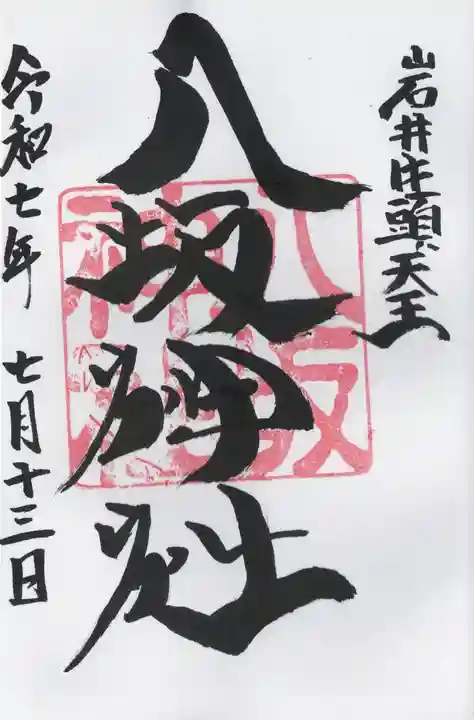 岩井牛頭天王
八坂神社
八坂神社
令和七年 七月十三日